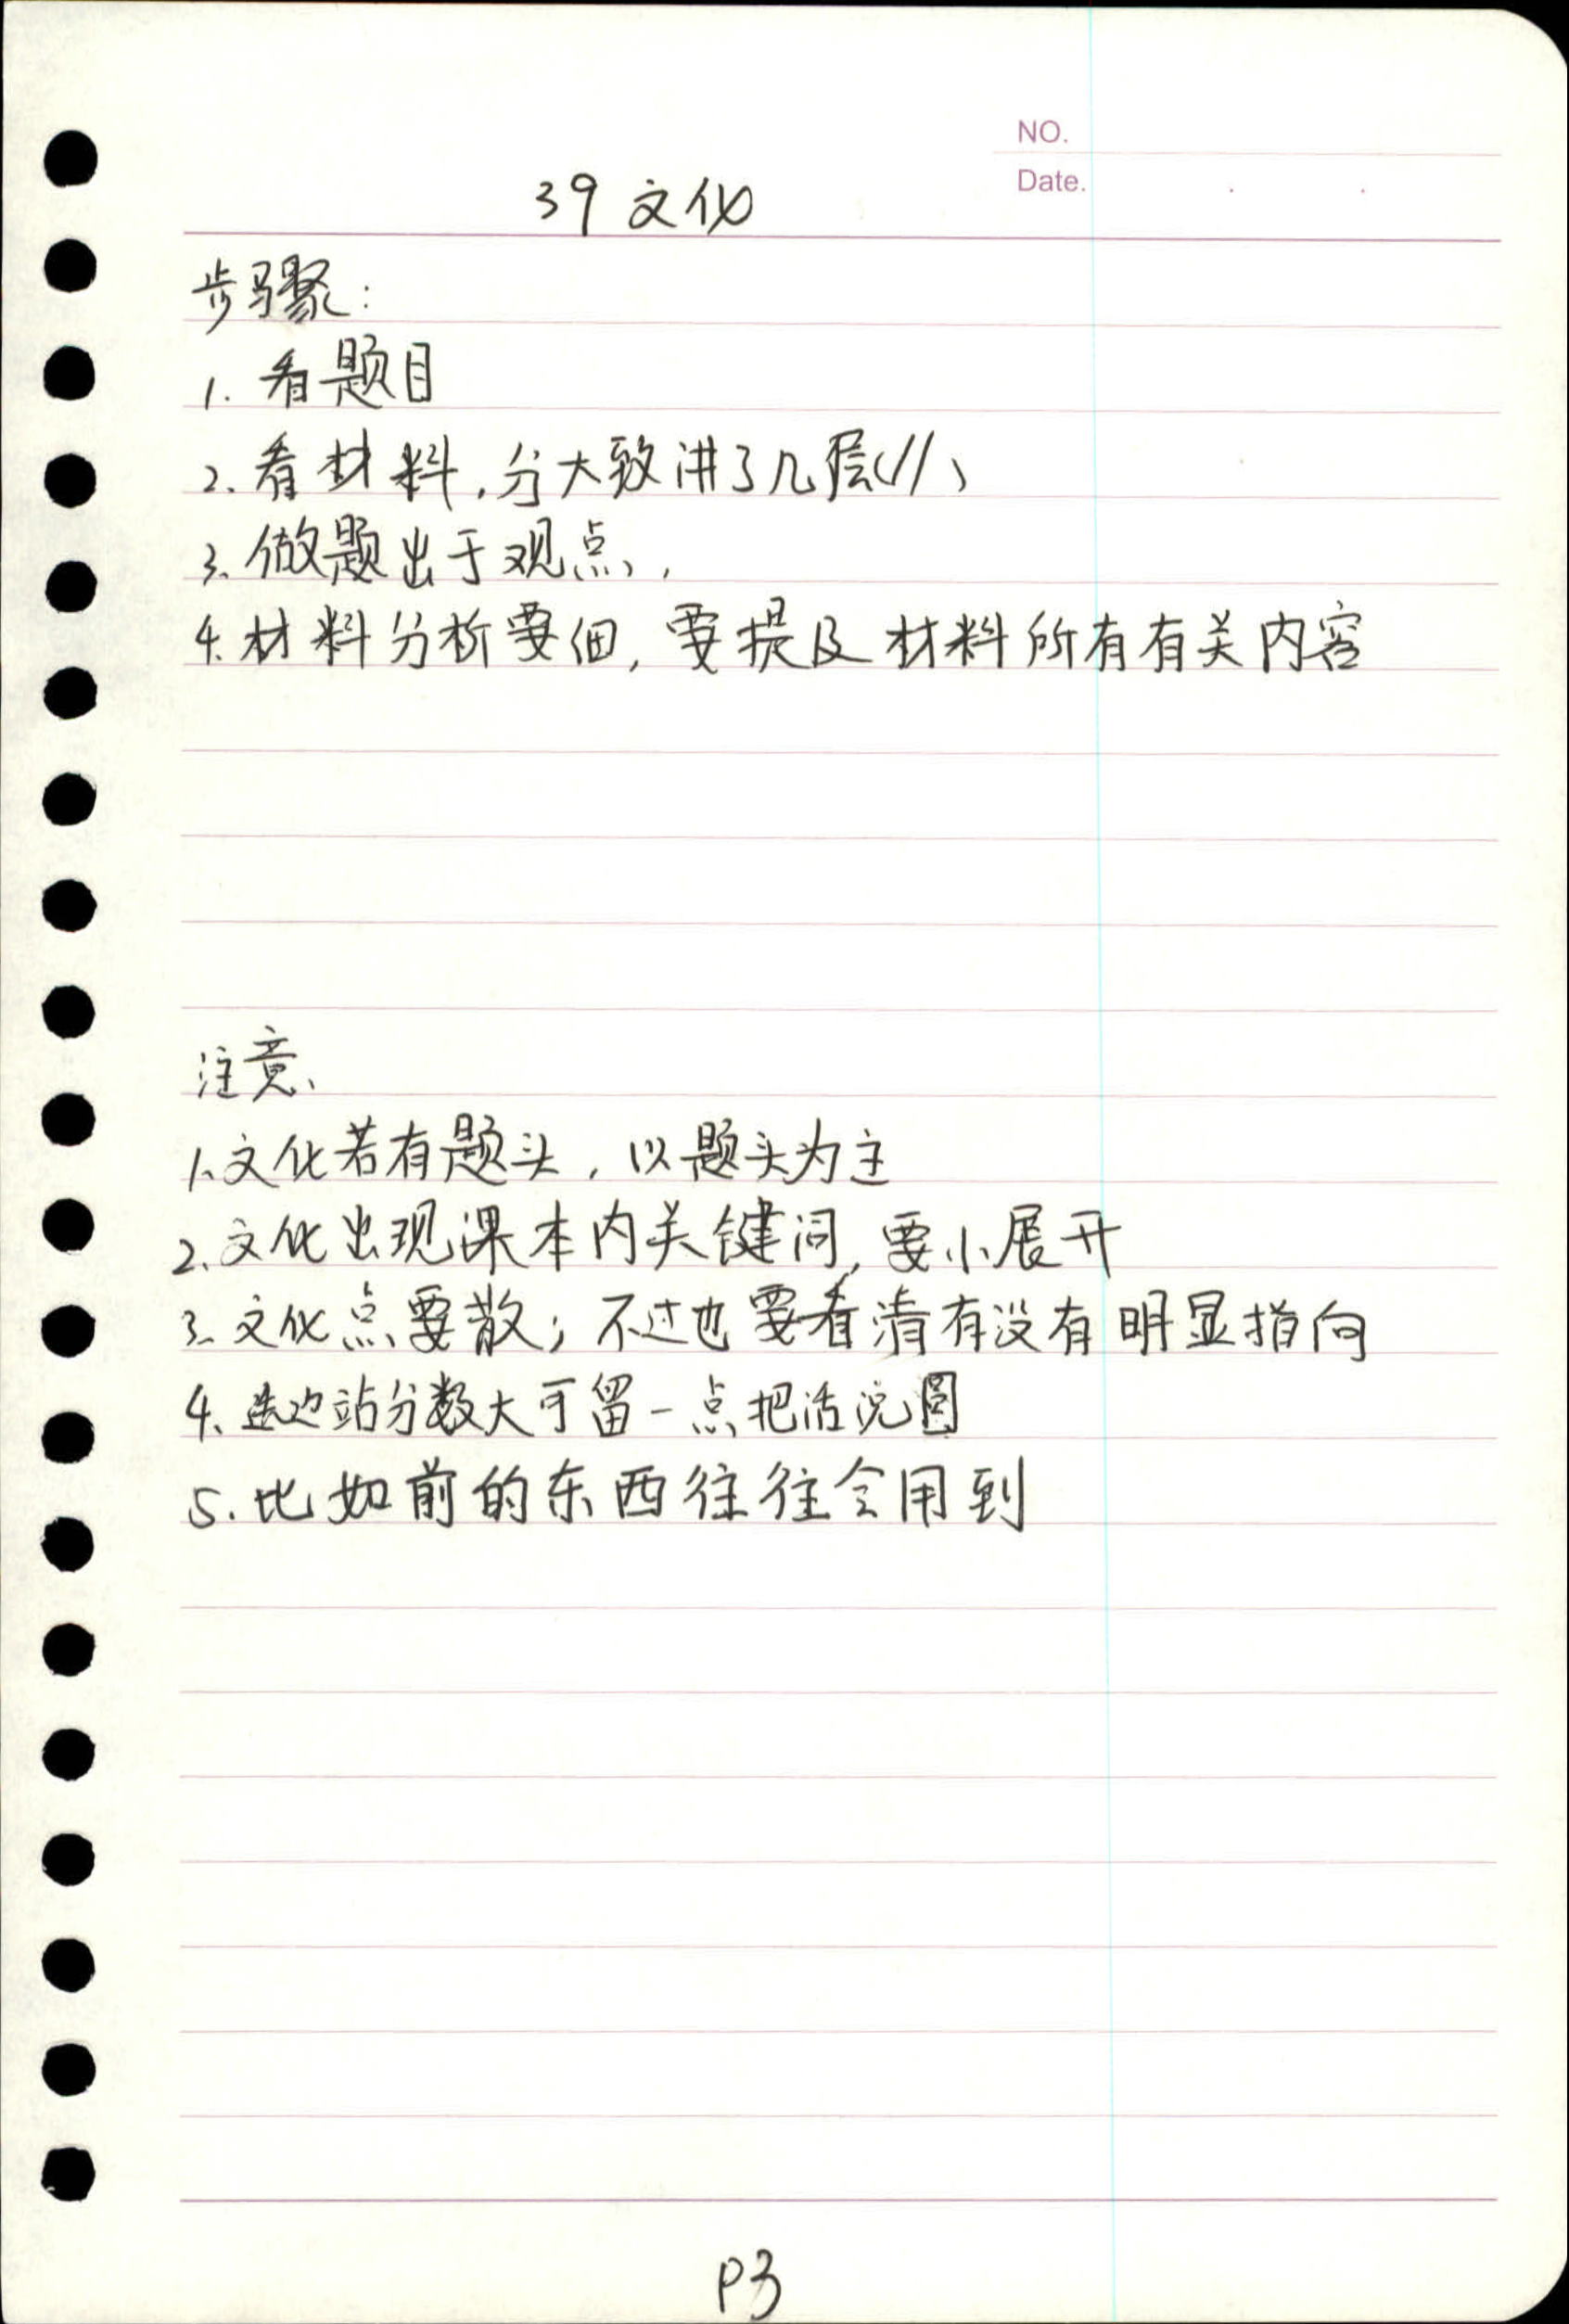 NO.
Date.
39 文化
步骤:
1. 看题目
2. 看材料,分大致讲了几层(//)
3. 做题出于观点,
4. 材料分析要细,要提及材料所有有关内容
注意、
1. 文化若有题头,以题头为主
2. 文化出现课本内关键词,要小展开
3. 文化点要散;不过也要看清有没有明显指向
4. 选边站分数大可留一点把话说圆
5. 比如前的东西往往会用到
P3